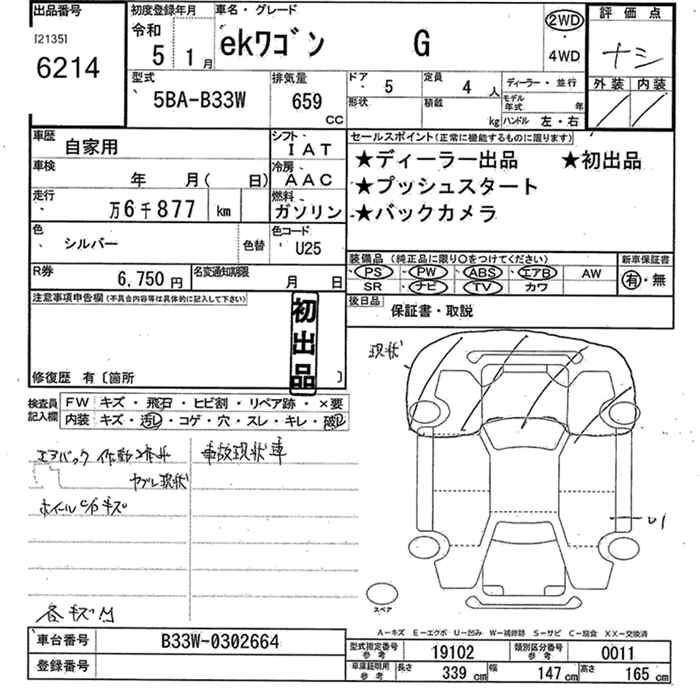 出品番号
[2135]
6214
初度登録年月
令和
5 1月
車名・グレード
ekワゴン G
2WD
・
4WD
評価点
ナシ
外装 内装
型式
5BA-B33W
排気量
659 CC
ドア 5
形状
定員 4人
積載 kg
ディーラー・並行
モデル年式 年
ハンドル 左・右
車歴
自家用
シフト
IAT
セールスポイント(正常に機能するものに限ります)
★ディーラー出品 ★初出品
★プッシュスタート
★バックカメラ
車検
年 月( 日)
冷房
AAC
走行
万6千877 km
燃料
ガソリン
色
シルバー
色替
色コード
U25
装備品(純正品に限り〇をつけてください)
新車保証書
PS PW ABS エアB AW
SR ナビ TV カワ
有・無
R券
6,750円
名変通知期限
月 日
後日品
保証書・取説
注意事項申告欄(不具合内容等は具体的に記入して下さい)
初出品
修復歴 有〔箇所 〕
現状
検査員記入欄
FW キズ・飛石・ヒビ割・リペア跡・×要
内装 キズ・汚レ・コゲ・穴・スレ・キレ・破レ
エアバック作動
事故現状車
ヤブレ現状
ホイールC/Dキズ
U1
スペア
各キズ
A-キズ E-エクボ U-凹み W-補修跡 S-サビ C-腐食 XX-交換済
車台番号
B33W-0302664
登録番号
型式指定番号 参考
19102
類別区分番号 参考
0011
車庫証明用 参考
長さ 339cm 幅 147cm 高さ 165cm